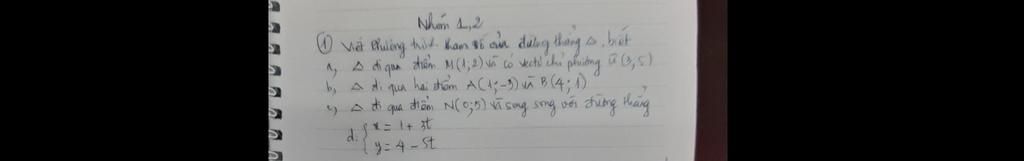 Nhóm 1,2
① Viết phương trình tham số của đường thẳng Δ, biết
a, Δ đi qua điểm M(1;2) và có vectơ chỉ phương u⃗(3;5)
b, Δ đi qua hai điểm A(1;-3) và B(4;1)
c, Δ đi qua điểm N(0;5) và song song với đường thẳng
d: { x = 1 + 3t
y = 4 - 5t